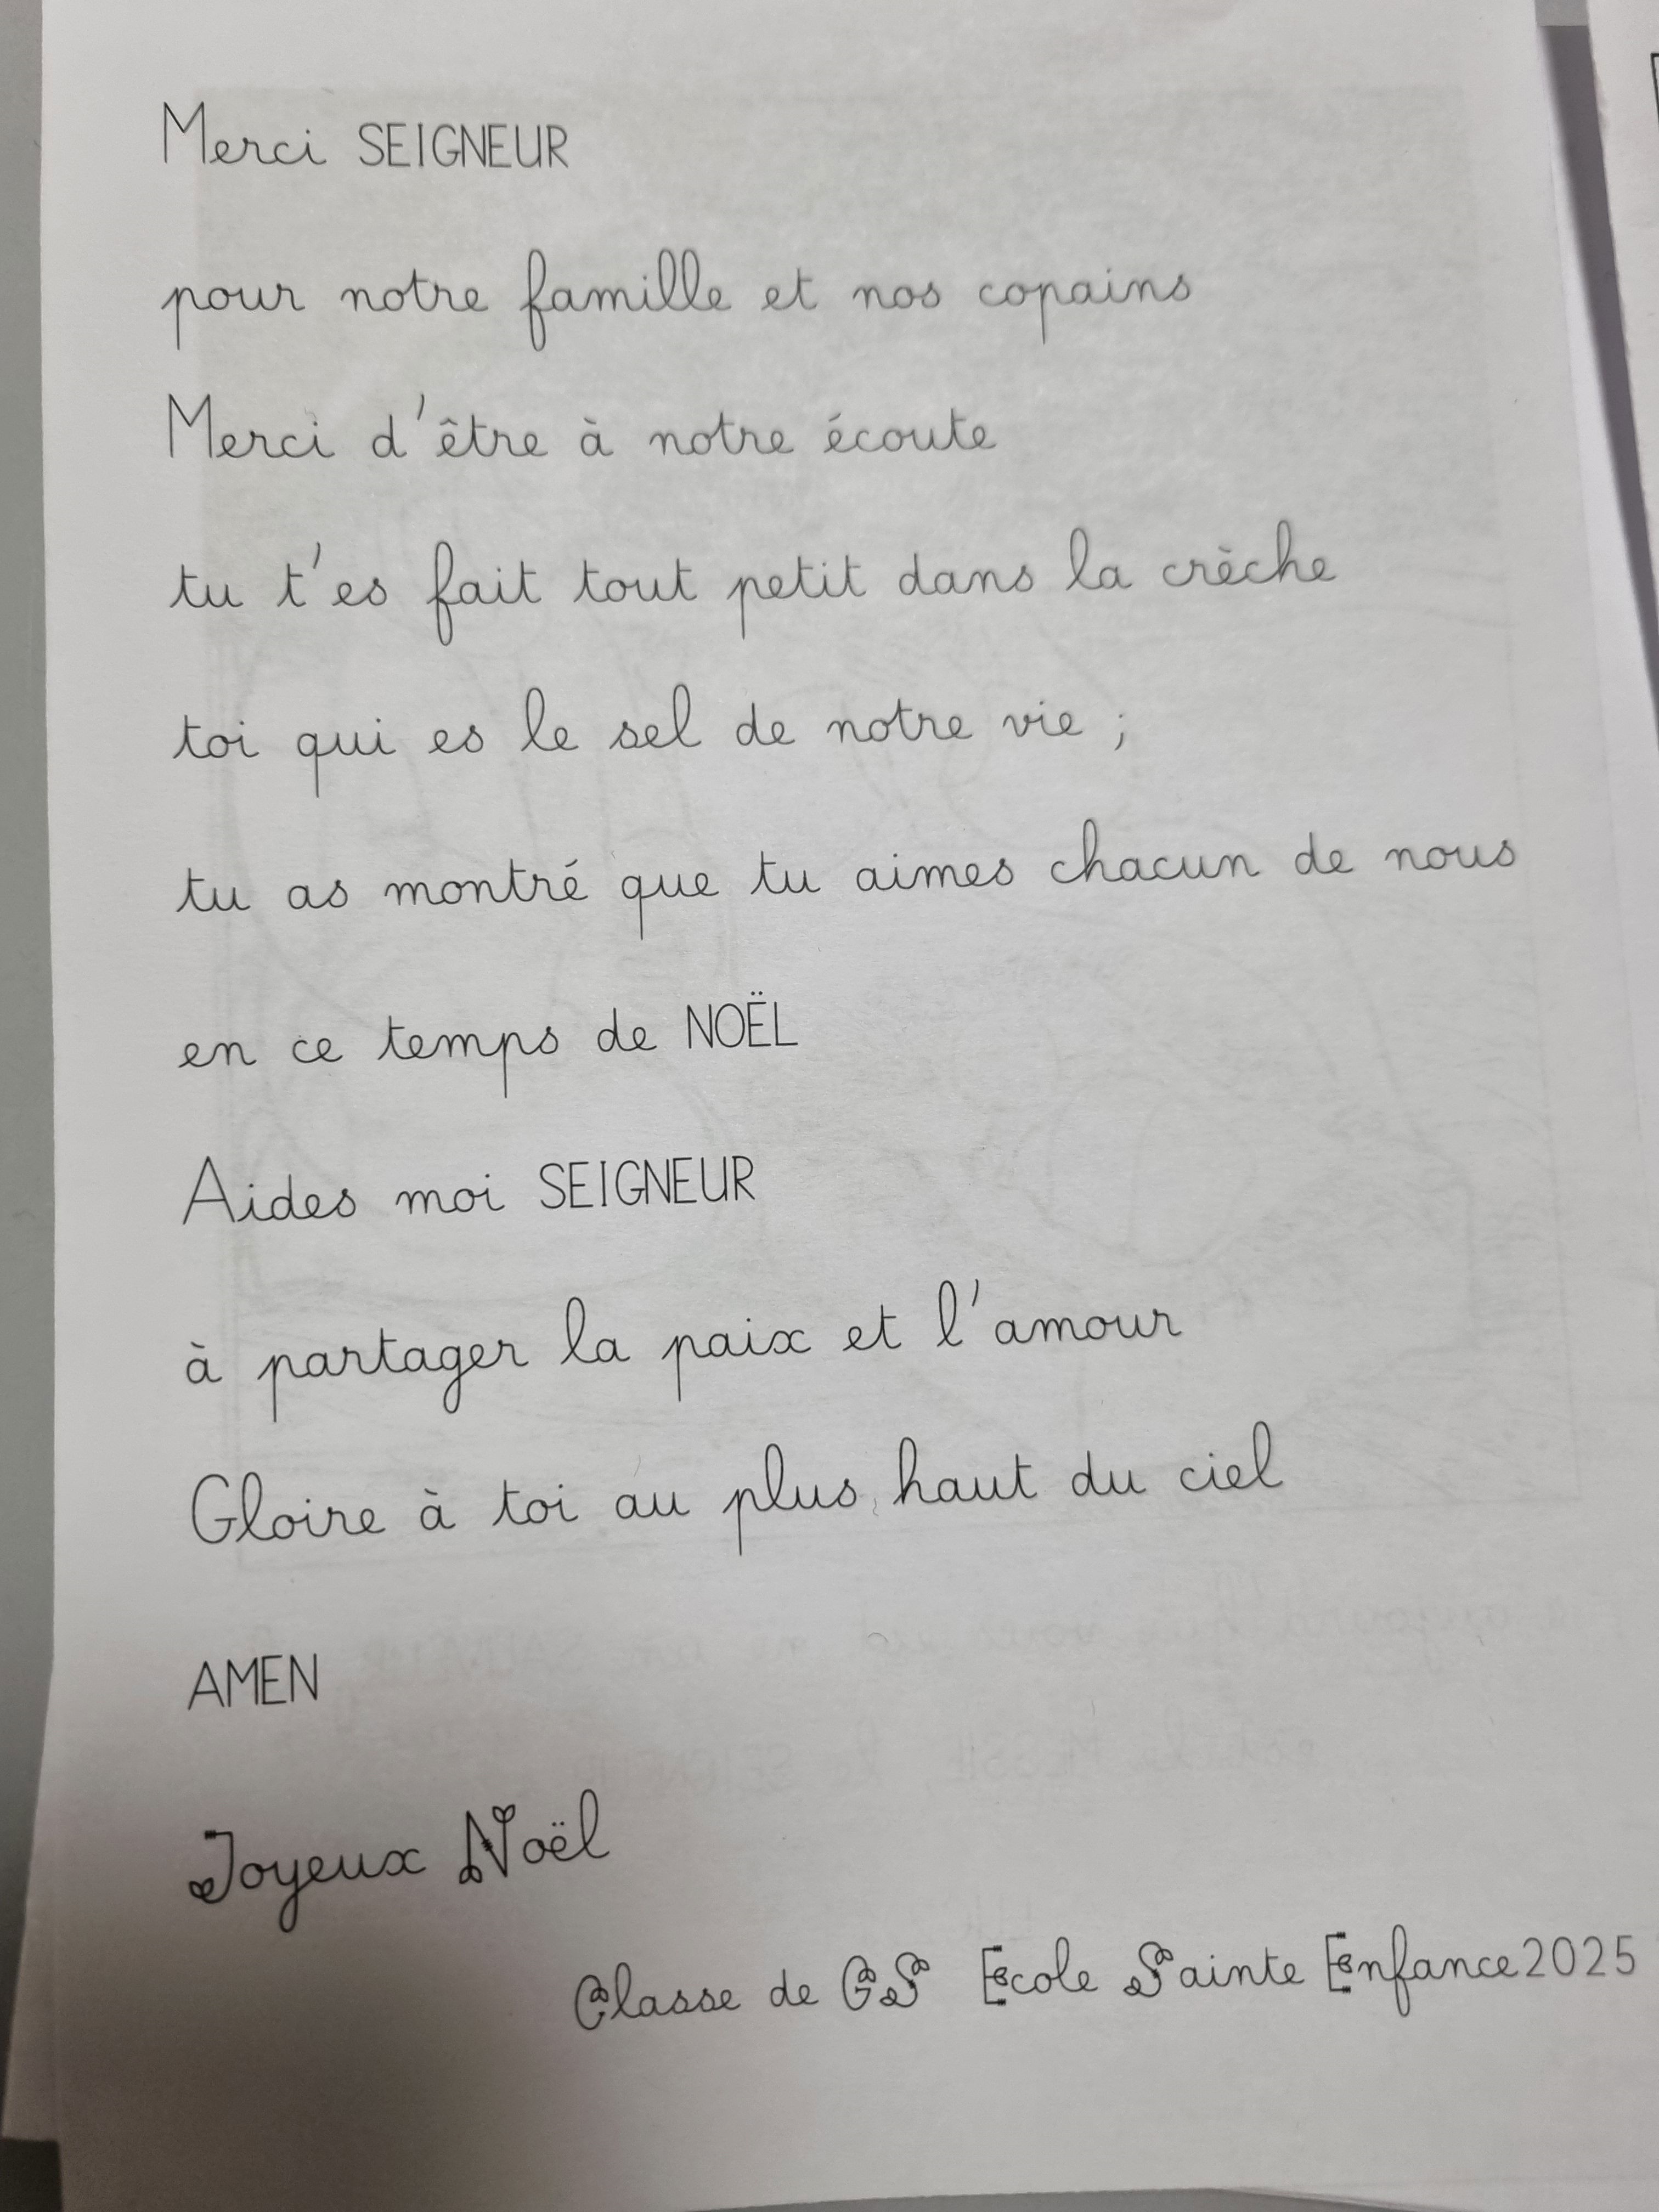 Merci SEIGNEUR
pour notre famille et nos copains
Merci d'être à notre écoute
tu t'es fait tout petit dans la crèche
toi qui es le sel de notre vie ;
tu as montré que tu aimes chacun de nous
en ce temps de NOËL
Aides moi SEIGNEUR
à partager la paix et l'amour
Gloire à toi au plus haut du ciel
AMEN
Joyeux Noël
Classe de GS Ecole Sainte Enfance2025